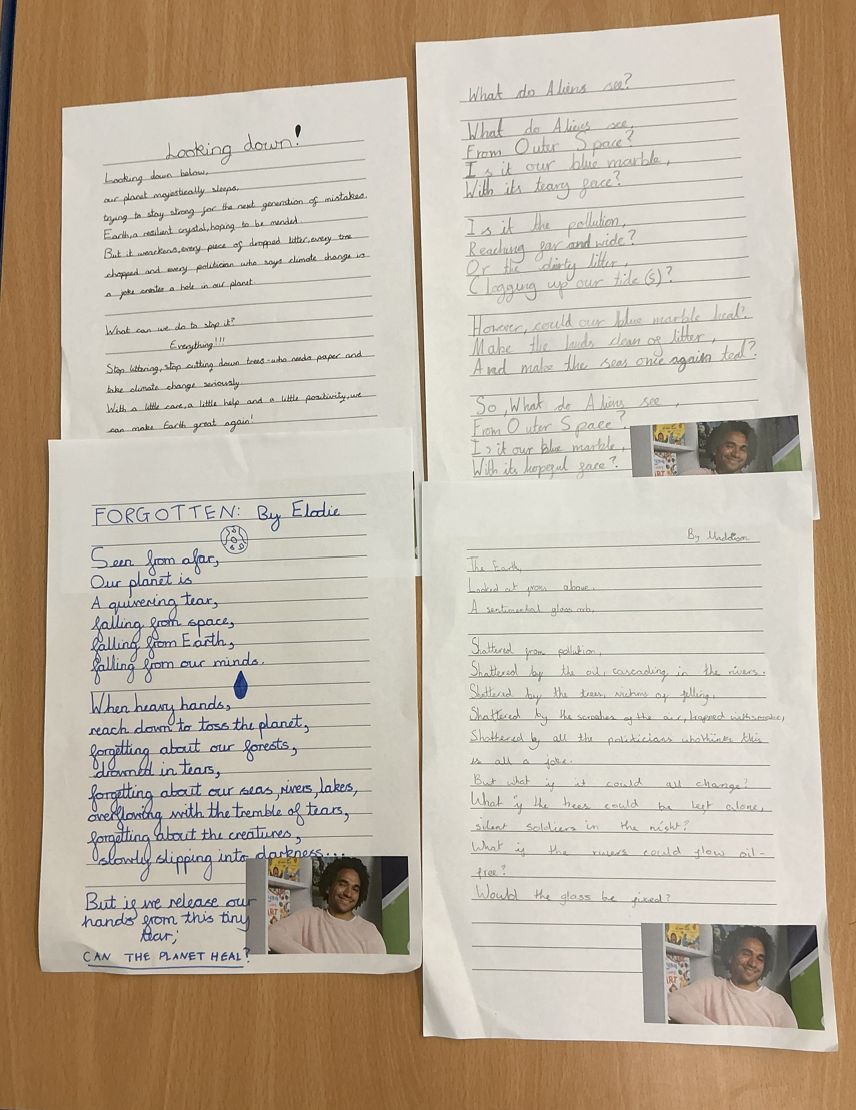 Looking down!
Looking down below,
our planet majestically sleeps,
trying to stay strong for the next generation of mistakes.
Earth, a resilient crystal, hoping to be mended.
But it weackens, every piece of dropped litter, every tree
chopped and every politician who says climate change is
a joke creates a hole in our planet.
What can we do to stop it?
Everything!!!
Stop littering, stop cutting down trees-who needs paper and
take climate change seriously.
With a little care, a little help and a little positivity, we
can make Earth great again!
What do Aliens see?
What do Aliens see,
From Outer Space?
Is it our blue marble,
With its teary face?
Is it the pollution,
Reaching far and wide?
Or the dirty litter,
Clogging up our tide(s)?
However, could our blue marble heal?
Make the lands clean of litter,
And make the seas once again teal?
So, What do Aliens see,
From Outer Space?
Is it our blue marble,
With its hopeful face?
FORGOTTEN: By Elodie
Seen from afar,
Our planet is
A quivering tear,
falling from space,
falling from Earth,
falling from our minds.
When heavy hands,
reach down to toss the planet,
forgetting about our forests,
drowned in tears,
forgetting about our seas, rivers, lakes,
overflowing with the tremble of tears,
forgetting about the creatures,
slowly slipping into darkness...
But if we release our
hands from this tiny
tear;
CAN THE PLANET HEAL?
By Maddison
The Earth,
Looked at from above.
A sentimental glass orb.
Shattered from pollution,
Shattered by the oil, cascading in the rivers.
Shattered by the trees, victims of felling,
Shattered by the screeches of the air, trapped with smoke,
Shattered by all the politicians who thinks this
is all a joke.
But what if it could all change?
What if the trees could be left alone,
silent soldiers in the night?
What if the rivers could flow oil-
free?
Would the glass be fixed?